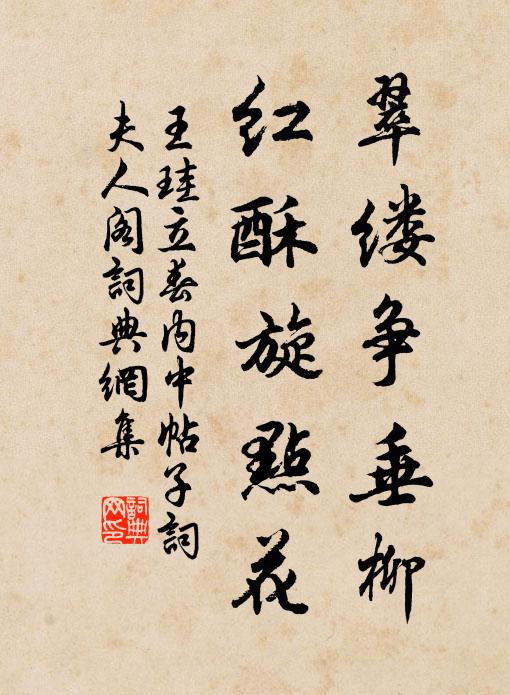 翠缕争垂柳
红酥旋點花
王珪立春内中帖子詞
夫人阁詞典網集
詞典
网印